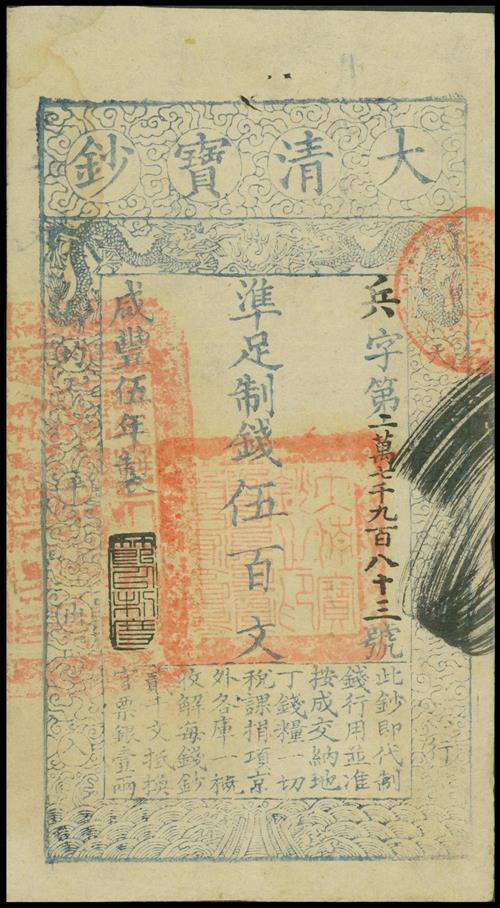 大清寶鈔
兵字第二萬七千九百八十三號
準足制錢伍百文
咸豐伍年製
此鈔即代制
錢行用並准
按成交納地
丁錢糧一切
稅課捐項京
外各庫一槪
收解每錢鈔
貳千文抵換
官票銀壹兩
天
行